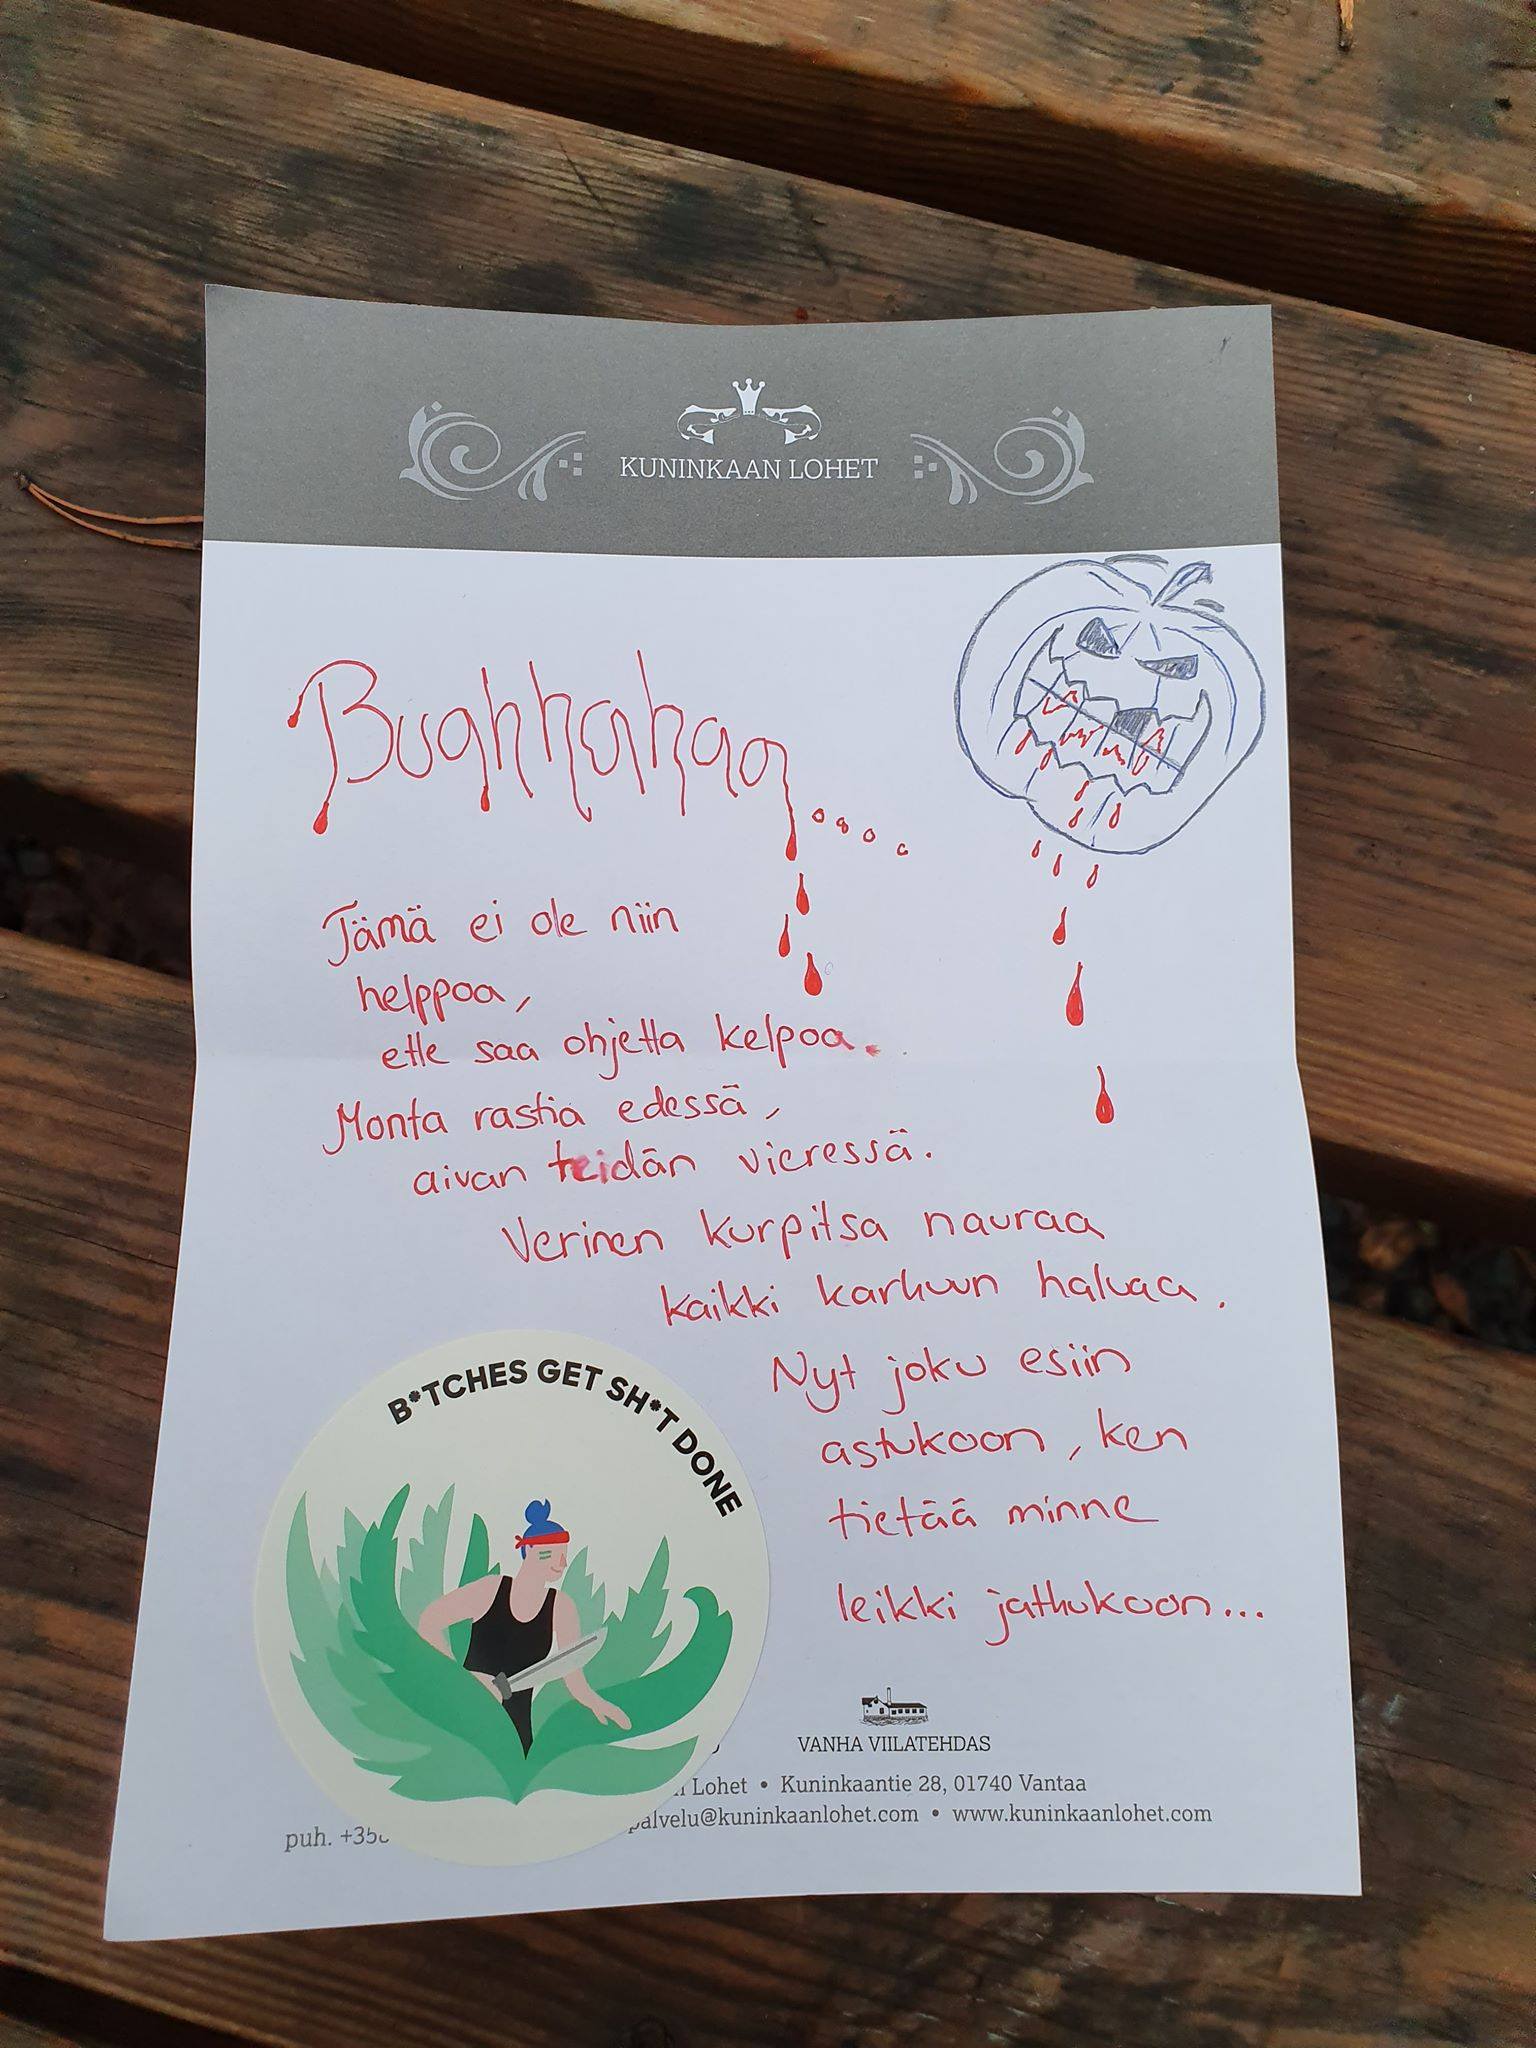 KUNINKAAN LOHET
Buahhahaa....
Tämä ei ole niin
helppoa,
ette saa ohjetta kelpoa.
Monta rastia edessä,
aivan teidän vieressä.
Verinen kurpitsa nauraa
kaikki karkuun haluaa.
Nyt joku esiin
astukoon, ken
tietää minne
leikki jatkukoon...
B*TCHES GET SH*T DONE
VANHA VIILATEHDAS
Lohet • Kuninkaantie 28, 01740 Vantaa
palvelu@kuninkaanlohet.com • www.kuninkaanlohet.com
puh. +358